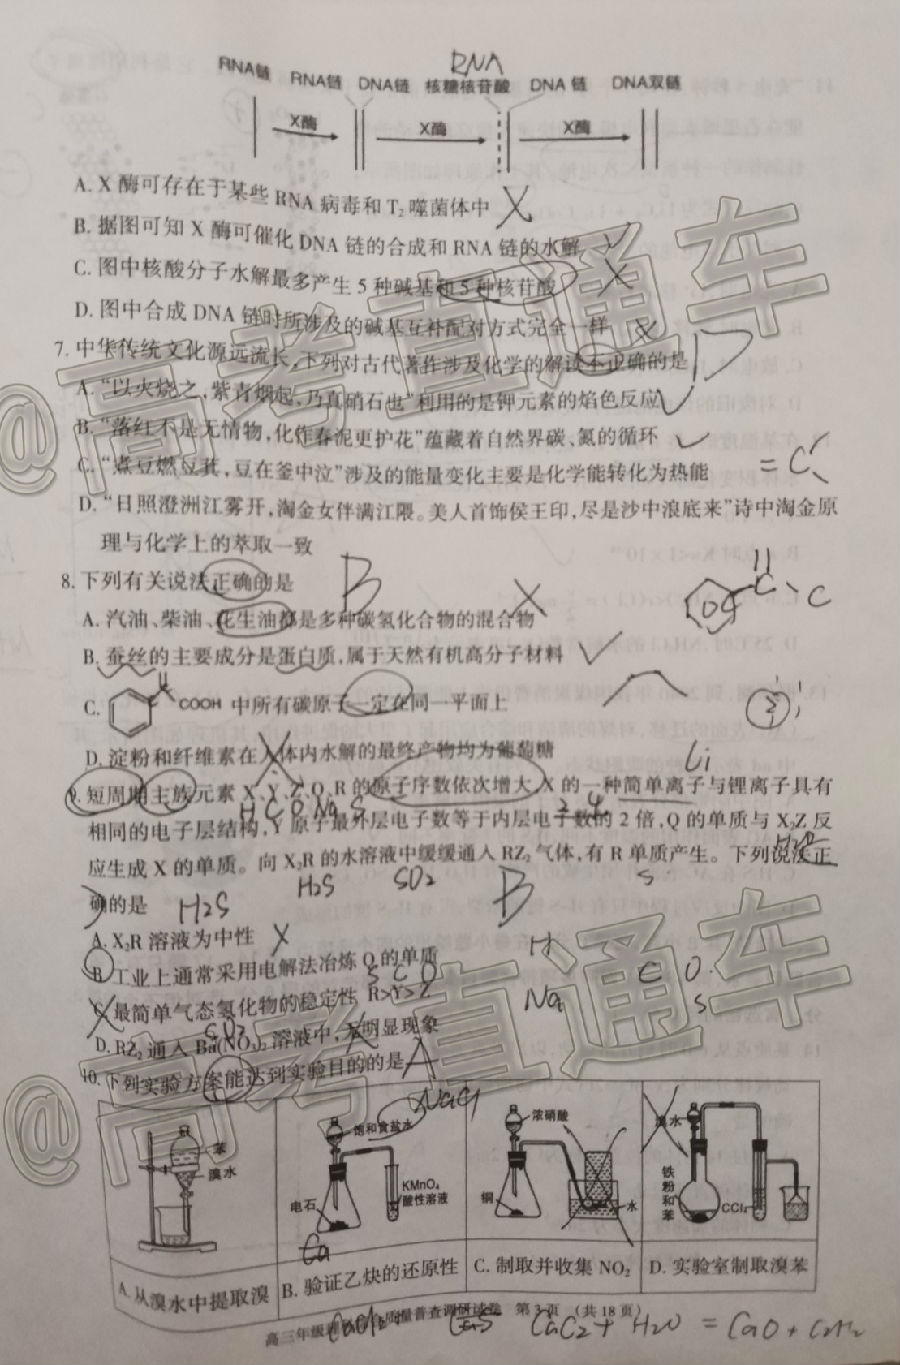 RNA
RNA链 RNA链 DNA链 核糖核苷酸 DNA 链 DNA双链
X酶 X酶 X酶
A. X 酶可存在于某些 RNA 病毒和 T₂ 噬菌体中
B. 据图可知 X 酶可催化 DNA 链的合成和 RNA 链的水解
C. 图中核酸分子水解最多产生 5 种碱基和 5 种核苷酸
D. 图中合成 DNA 链时所涉及的碱基互补配对方式完全一样
7. 中华传统文化源远流长,下列对古代著作涉及化学的解读不正确的是 D
A. “以火烧之,紫青烟起,乃真硝石也”利用的是钾元素的焰色反应
B. “落红不是无情物,化作春泥更护花”蕴藏着自然界碳、氮的循环
C. “煮豆燃豆萁,豆在釜中泣”涉及的能量变化主要是化学能转化为热能
D. “日照澄洲江雾开,淘金女伴满江隈。美人首饰侯王印,尽是沙中浪底来”诗中淘金原
理与化学上的萃取一致
8. 下列有关说法正确的是 B
A. 汽油、柴油、花生油都是多种碳氢化合物的混合物
B. 蚕丝的主要成分是蛋白质,属于天然有机高分子材料
C. COOH 中所有碳原子一定在同一平面上
D. 淀粉和纤维素在人体内水解的最终产物均为葡萄糖
Li
9. 短周期主族元素 X、Y、Z、Q、R 的原子序数依次增大,X 的一种简单离子与锂离子具有
H C O Na S 2 4
相同的电子层结构,Y 原子最外层电子数等于内层电子数的 2 倍,Q 的单质与 X₂Z 反
应生成 X 的单质。向 X₂R 的水溶液中缓缓通入 RZ₂ 气体,有 R 单质产生。下列说法正
H₂S SO₂ S
确的是 H₂S B
A. X₂R 溶液为中性 H
B. 工业上通常采用电解法冶炼 Q 的单质
S C O C O
C. 最简单气态氢化物的稳定性 R>Y>Z Na S
SO₂
D. RZ₂ 通入 Ba(NO₃)₂ 溶液中,无明显现象
10. 下列实验方案能达到实验目的的是 A
NaCl
苯 溴水
饱和食盐水 电石 KMnO₄ 酸性溶液
Ca
浓硝酸 铜 水
溴水 铁粉和苯 CCl₄
A. 从溴水中提取溴 B. 验证乙炔的还原性 C. 制取并收集 NO₂ D. 实验室制取溴苯
质量普查调研试卷 第 3 页 (共 18 页)
CaC₂ + H₂O = CaO + C₂H₂